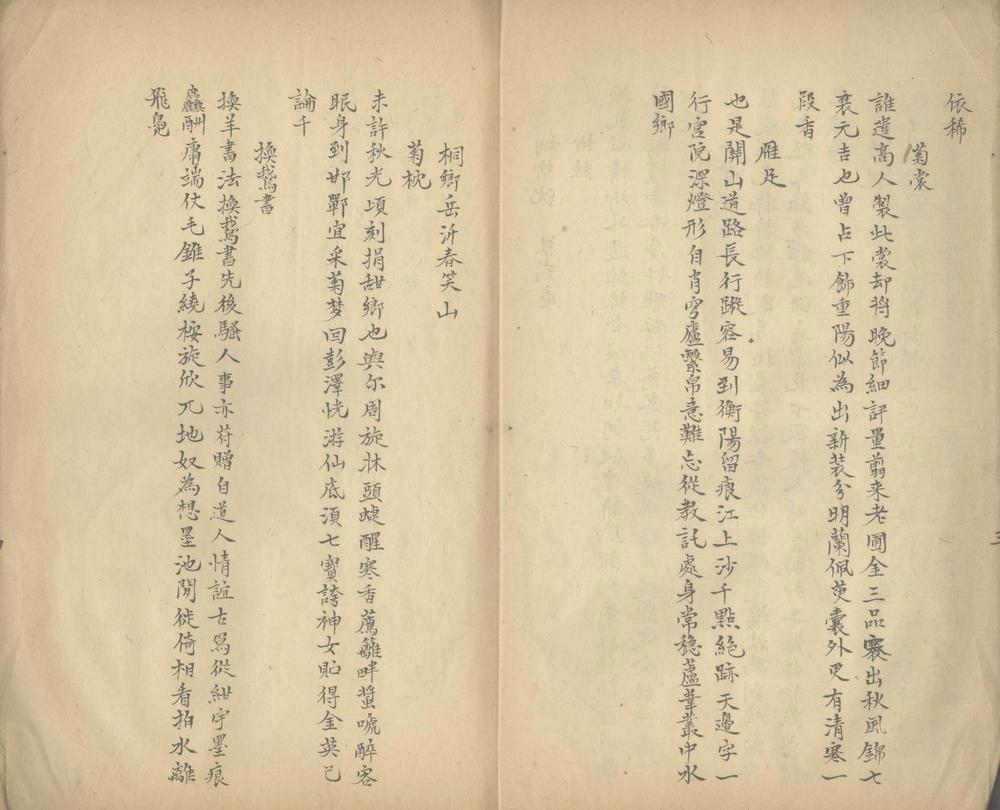 依稀
菊裳
誰遣高人製此裳却將晚節細評量翦来老圃金三品褰出秋風錦七
襄元吉也曾占下飾重陽似為出新装分明蘭佩萸囊外更有清寒一
段香
雁足
也是關山道路長行蹤容易到衡陽留痕江上沙千點絶跡天邉字一
行宮院深燈形自肖穹廬繫帛意難忘從教託處身常穏蘆葦叢中水
國鄉
桐鄉岳沂春笑山
菊枕
未許秋光頃刻捐甜鄉也與尔周旋牀頭蜨醒寒香薦籬畔蛩唬醉客
眠身到邯鄲宜采菊梦回彭澤恍游仙底湏七寶誇神女貯得金英已
論千
換鵞書
換羊書法換鵞書先後騷人事亦苻贈自道人情誼古写從紺宇墨痕
麤酬庸端仗毛錐子繞桉旋欣兀地奴為想墨池閒徙倚相看拍水離
飛鳧